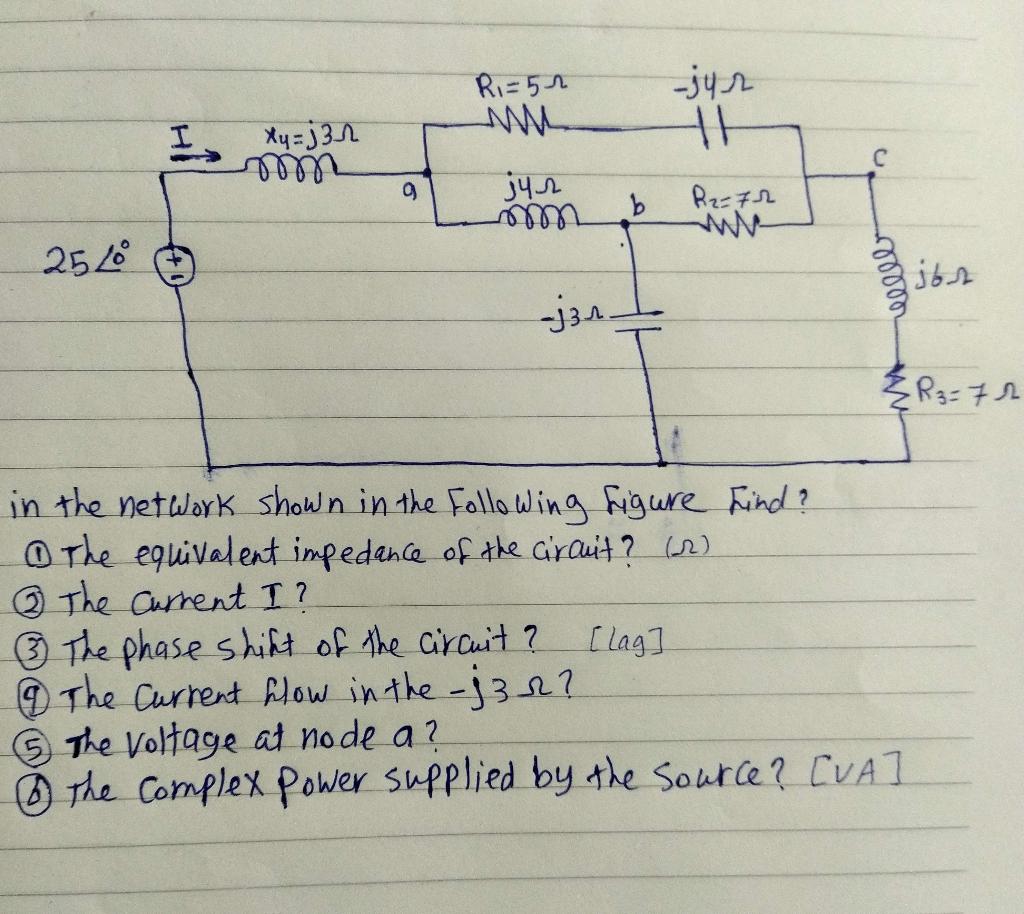 R₁=5Ω
-j4Ω
I
X₄=j3Ω
c
a
j4Ω
b
R₂=7Ω
25∠0°
+
-
j6Ω
-j3Ω
R₃=7Ω
in the network shown in the Following Figure Find?
① The equivalent impedance of the circuit? (Ω)
② The Current I?
③ The phase shift of the circuit? [lag]
④ The Current flow in the -j3Ω?
⑤ The Voltage at node a?
⑥ The Complex Power supplied by the Source? [VA]